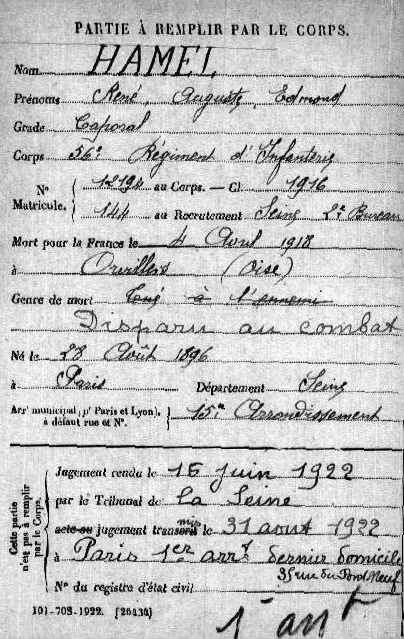 PARTIE À REMPLIR PAR LE CORPS.
Nom HAMEL
Prénoms René, Auguste, Edmond
Grade Caporal
Corps 56e Régiment d'Infanterie
N° Matricule. { 12194 au Corps. — Cl. 1916
144 au Recrutement Seine 2e Bureau
Mort pour la France le 4 Avril 1918
à Orvillers (Oise)
Genre de mort Tué à l'ennemi
Disparu au combat
Né le 28 Août 1896
à Paris Département Seine
Arrt municipal (pr Paris et Lyon), à défaut rue et N°. } 15e Arrondissement
Cette partie n'est pas à remplir par le Corps.
Jugement rendu le 15 juin 1922
par le Tribunal de La Seine
acte ou jugement transmis le 31 aout 1922
à Paris 1er arrt dernier domicile
35 rue du Pont Neuf
N° du registre d'état civil
101-708-1922. [26434]
1er arrt